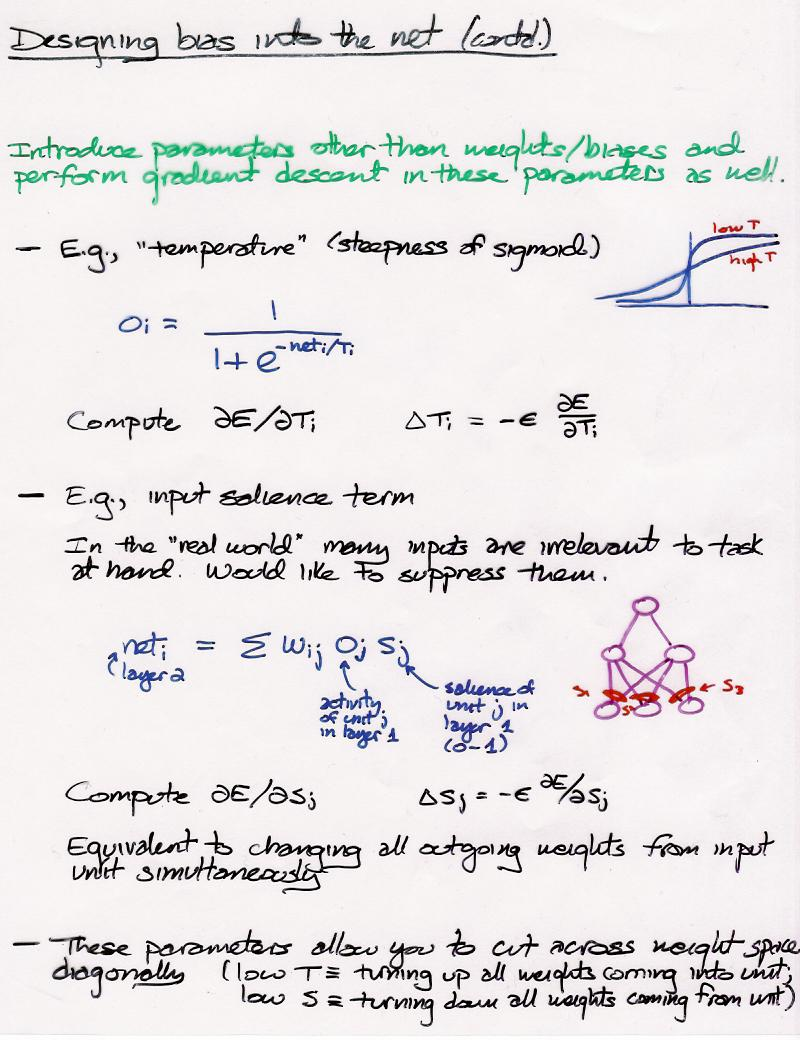 Designing bias into the net (contd.)
Introduce parameters other than weights/biases and
perform gradient descent in these parameters as well.
— E.g., "temperature" (steepness of sigmoid)
low T
high T
oᵢ = 1 / (1 + e^(-netᵢ/Tᵢ))
Compute ∂E/∂Tᵢ    ΔTᵢ = -ϵ ∂E/∂Tᵢ
— E.g., input salience term
In the "real world" many inputs are irrelevant to task
at hand. Would like to suppress them.
netᵢ = Σ wᵢⱼ Oⱼ Sⱼ
layer 2
activity
of unit j
in layer 1
salience of
unit j in
layer 1
(0-1)
S₁
S
← S₃
Compute ∂E/∂Sⱼ    ΔSⱼ = -ϵ ∂E/∂Sⱼ
Equivalent to changing all outgoing weights from input
unit simultaneously
— These parameters allow you to cut across weight space
diagonally (low T ≡ turning up all weights coming into unit;
low S ≡ turning down all weights coming from unit)